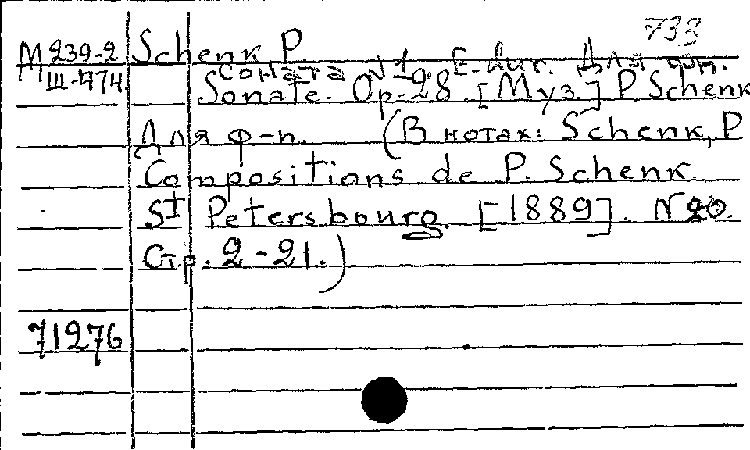 733
М 239-2 Schenk P
III-1174 Соната №1. E-dur. Для фп.
Sonate. Op. 28. [Муз.] P Schenk
Для ф-п. (В нотах: Schenk, P
Compositions de P. Schenk
St Petersbourg [1889]. N 20.
Стр. 2-21.)
71276